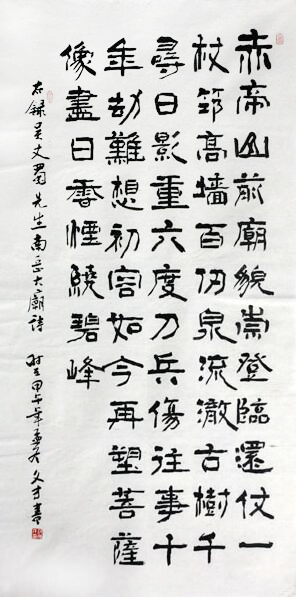 赤帝山前廟貌崇登臨還仗一
杖筇高墻百仞泉流澈古樹千
尋日影重六度刀兵傷往事十
年劫難想初容如今再塑菩薩
像盡日煙繞碧峰
右錄吴丈蜀先生南岳大廟詩 时在甲午年孟冬文才書